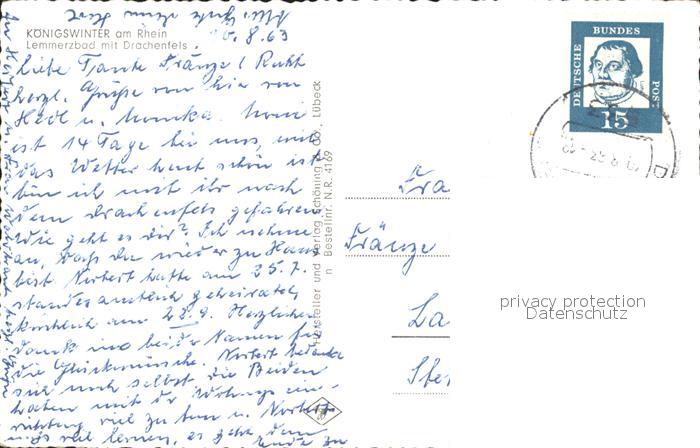 KÖNIGSWINTER am Rhein
Lemmerzbad mit Drachenfels
.8.63
Liebe Tante Fränze!
herzl. Grüße von hier von
Hedl u. Monika. Moni
ist 14 Tage bei uns, weil
das Wetter heut schön ist
bin ich mit ihr nach
dem Drachenfels gefahren
Wie geht es dir? Ich nehme
an, daß du wieder zu Haus
bist. Norbert hatte am 25.7.
standesamtlich geheiratet,
kirchlich am 28.9. Herzlichen
Dank im beider Namen für
die Glückwünsche. Norbert bedankt
sich noch selbst, die Beiden
haben mit der Wohnungsein-
richtung viel zu tun u. Norbert
muß viel lernen, es geht dem
Ende zu
Hersteller und Verlag Schöning & Co., Lübeck
Bestellnr. N.R. 4169
DEUTSCHE BUNDESPOST
15
Fra
Fränze
La
Ste
privacy protection
Datenschutz